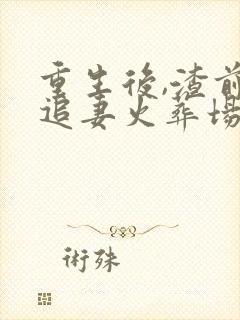 重生後,渣前
追妻火葬場
術殊